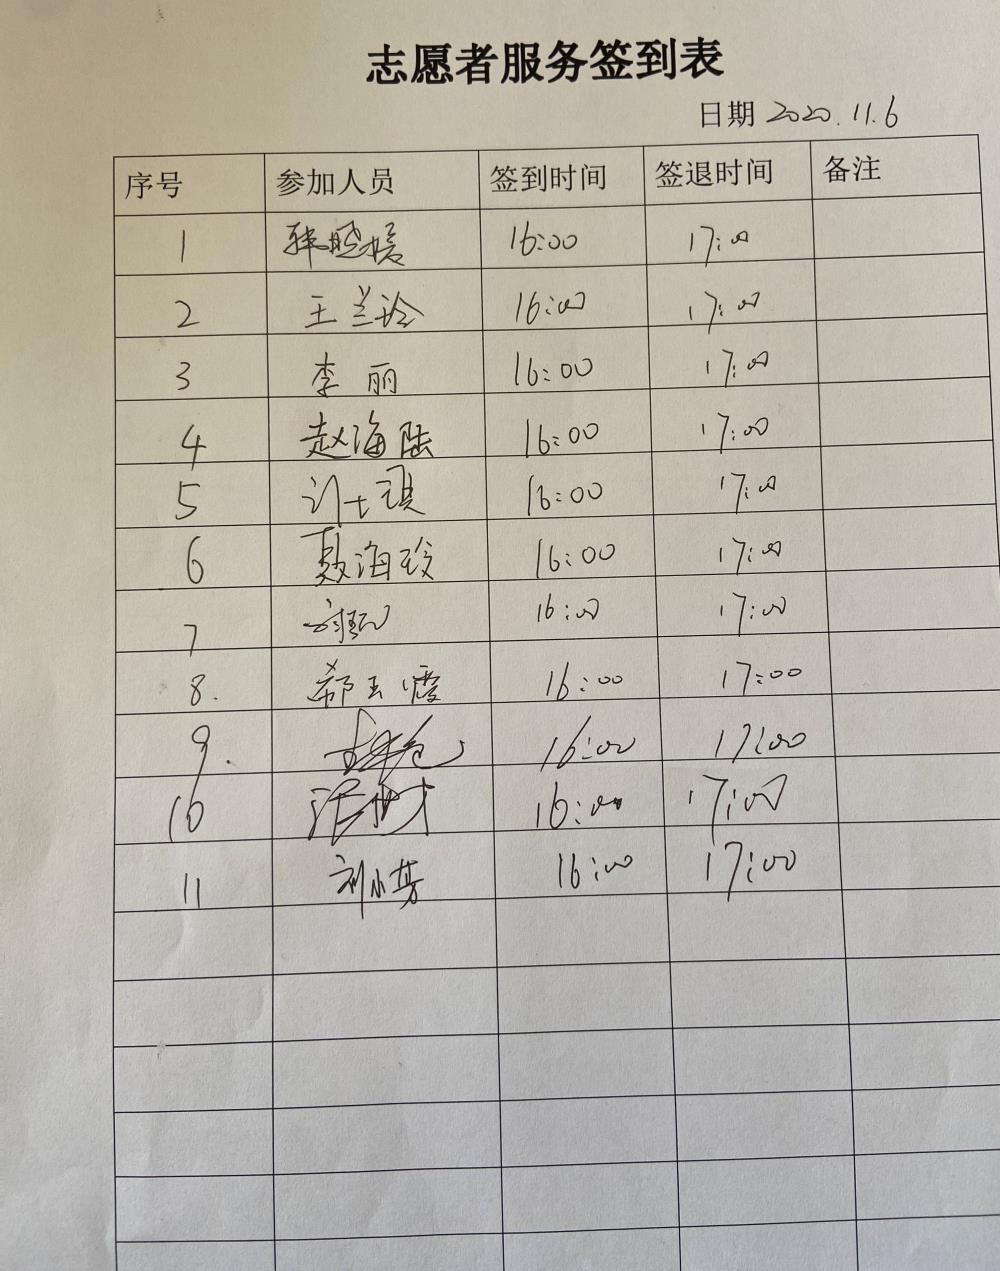 志愿者服务签到表
日期 2020.11.6
序号 参加人员 签到时间 签退时间 备注
1 韩晓媛 16:00 17:00
2 王兰玲 16:00 17:00
3 李丽 16:00 17:00
4 赵海陆 16:00 17:00
5 16:00 17:00
6 海玲 16:00 17:00
7 16:00 17:00
8. 郗玉霞 16:00 17:00
9. 16:00 17:00
10 16:00 17:00
11 刘小芳 16:00 17:00